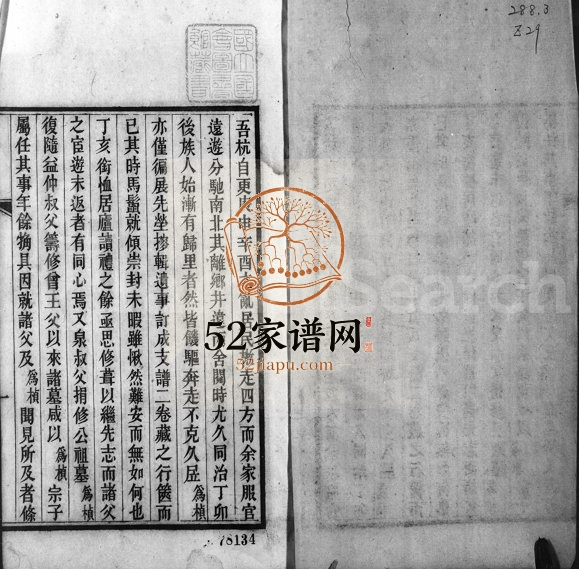 288.3
Z29
吾杭自更庚申辛酉居民走四方而余家服官
遠遊分馳南北其離鄉井遠舍閱時尤久同治丁卯
後族人始漸有歸里者然皆饑驅奔走不克久居為楨
亦僅徧展先塋掇輯遺事訂成支譜二卷藏之行篋而
已其時馬鬛就傾崇封未暇雖愀然難安而無如何也
丁亥銜恤居廬讀禮之餘亟思修葺以繼先志而諸父
之宦遊未返者有同心焉又泉叔父捐修公祖墓為楨
復隨益仲叔父籌修曾王父以來諸墓咸以為楨宗子
屬任其事年餘觕具因就諸父及為楨聞見所及者條
52家谱网
52jiapu.com
Search
78134